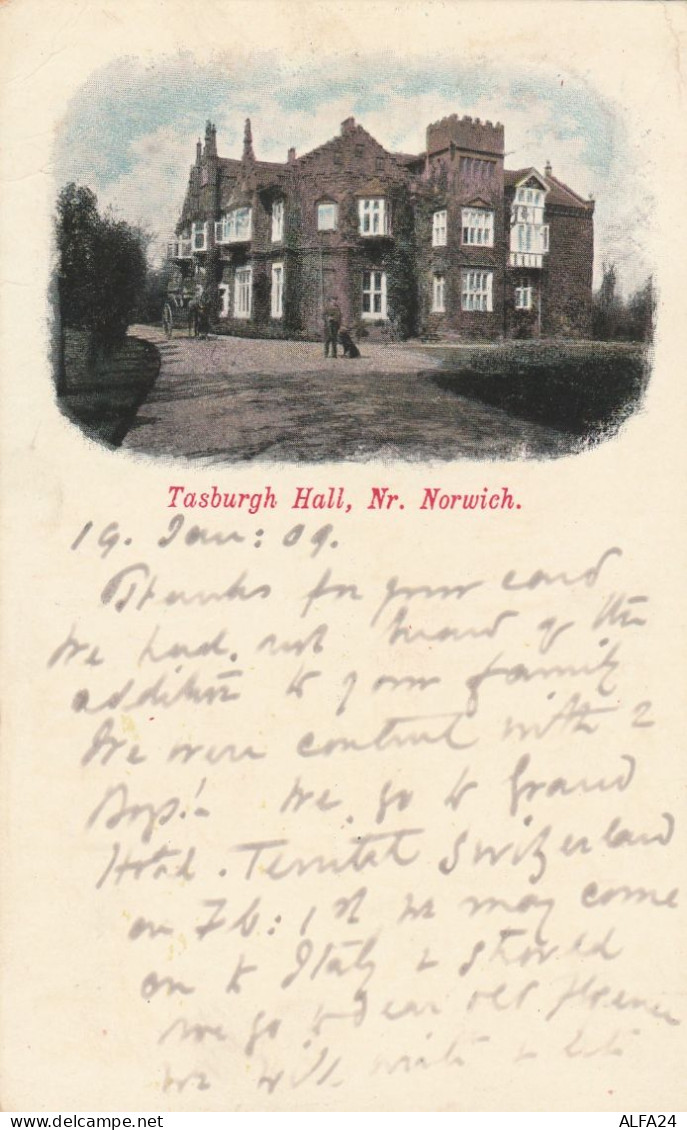 Tasburgh Hall, Nr. Norwich.
19. Jan: 09.
Thanks for your card
We had not heard of the
addition to your family
We were content with 2
Boys! We go to Grand
Hotel. Territet Switzerland
on Feb: 1st We may come
on to Italy & should
we go to dear old Florence
we will write & let
ALFA24